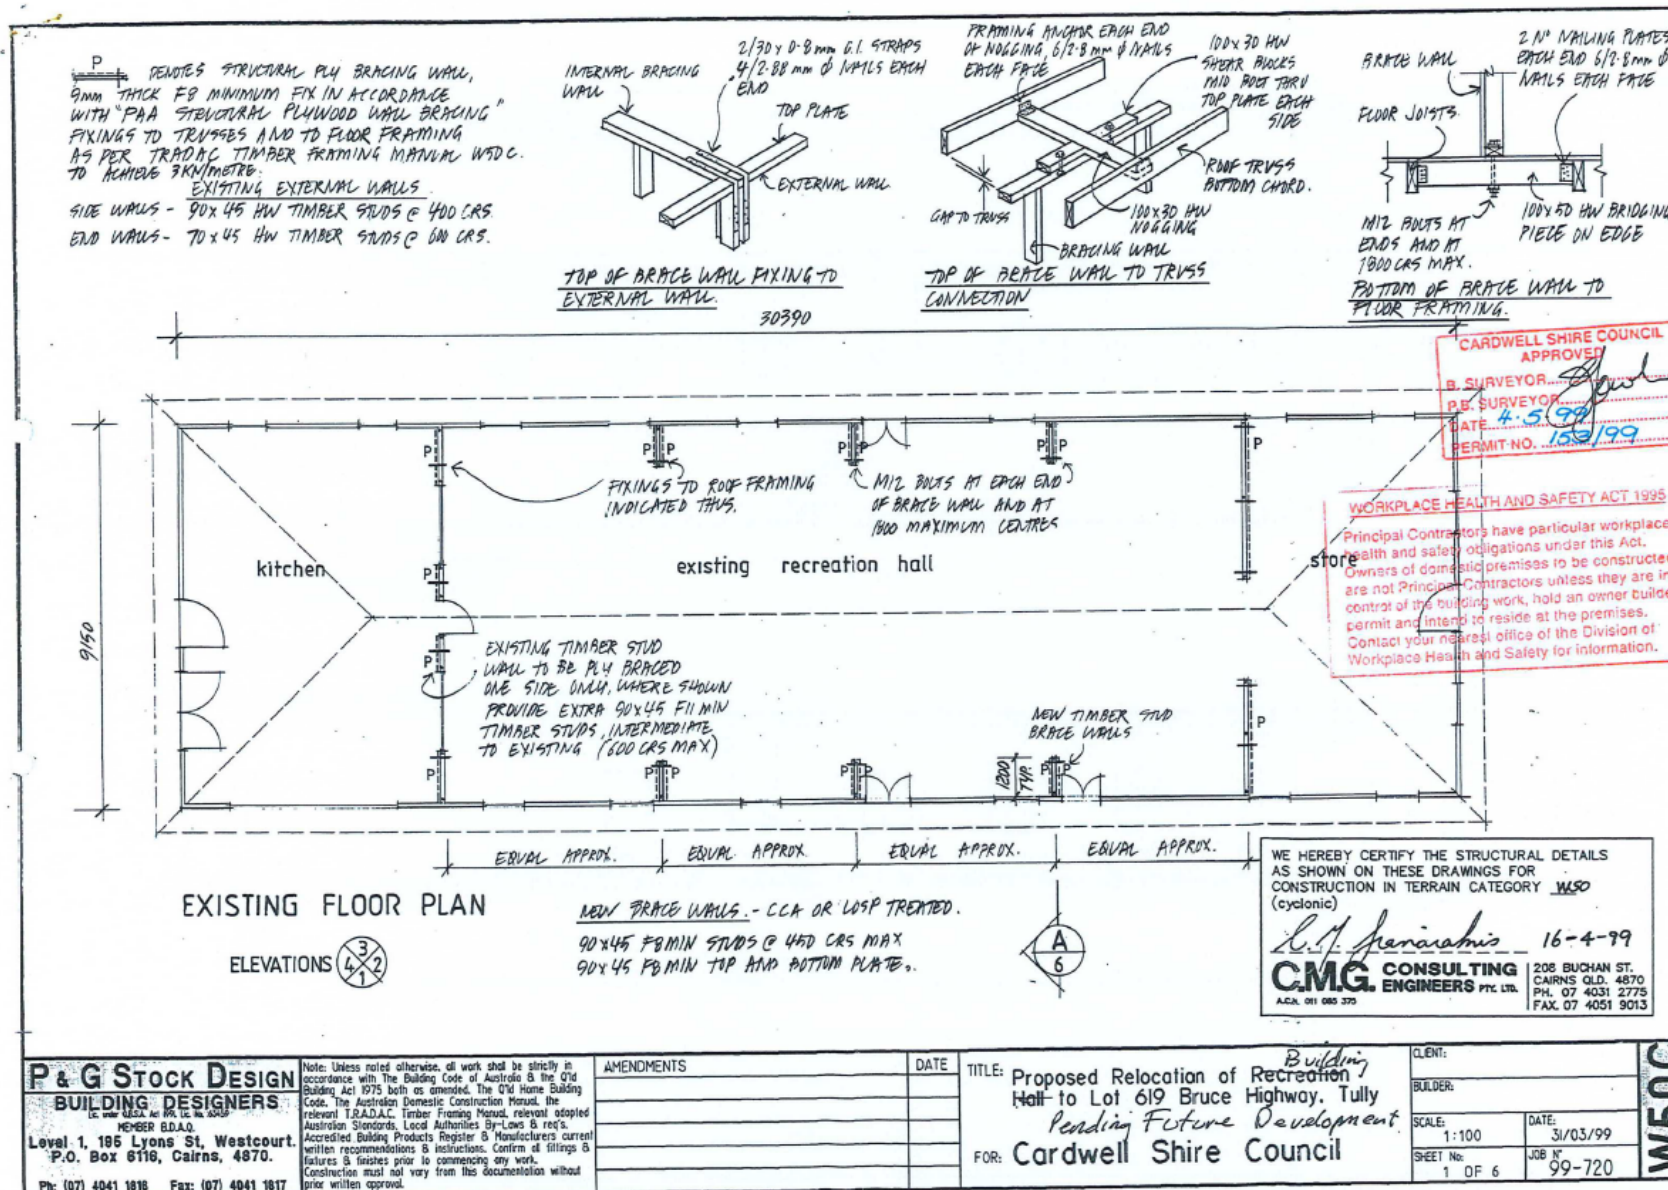 P DENOTES STRUCTURAL PLY BRACING WALL,
9mm THICK F8 MINIMUM FIX IN ACCORDANCE
WITH "PAA STRUCTURAL PLYWOOD WALL BRACING"
FIXINGS TO TRUSSES AND TO FLOOR FRAMING
AS PER TRADAC TIMBER FRAMING MANUAL W50C.
TO ACHIEVE 3KN/METRE.
EXISTING EXTERNAL WALLS
SIDE WALLS - 90x45 HW TIMBER STUDS @ 400 CRS.
END WALLS - 70x45 HW TIMBER STUDS @ 600 CRS.
INTERNAL BRACING
WALL
2/30x0·8mm G.I. STRAPS
4/2·88mm φ NAILS EACH
END
TOP PLATE
EXTERNAL WALL
TOP OF BRACE WALL FIXING TO
EXTERNAL WALL.
FRAMING ANCHOR EACH END
OF NOGGING, 6/2·8mm φ NAILS
EACH FACE
100x30 HW
SHEAR BLOCKS
M10 BOLT THRU
TOP PLATE EACH
SIDE
ROOF TRUSS
BOTTOM CHORD.
GAP TO TRUSS
100x30 HW
NOGGING
BRACING WALL
TOP OF BRACE WALL TO TRUSS
CONNECTION
BRACE WALL
2 Nº NAILING PLATES
EACH END 6/2·8mm φ
NAILS EACH FACE
FLOOR JOISTS.
M12 BOLTS AT
ENDS AND AT
1800 CRS MAX.
100x50 HW BRIDGING
PIECE ON EDGE
BOTTOM OF BRACE WALL TO
FLOOR FRAMING.
30390
CARDWELL SHIRE COUNCIL
APPROVED
B. SURVEYOR
P.B. SURVEYOR
DATE 4·5·99
PERMIT NO. 153/99
P
P P
P P
P P
P
FIXINGS TO ROOF FRAMING
INDICATED THUS.
M12 BOLTS AT EACH END
OF BRACE WALL AND AT
1800 MAXIMUM CENTRES
WORKPLACE HEALTH AND SAFETY ACT 1995
Principal Contractors have particular workplace
health and safety obligations under this Act.
Owners of domestic premises to be constructed
are not Principal Contractors unless they are in
control of the building work, hold an owner builder
permit and intend to reside at the premises.
Contact your nearest office of the Division of
Workplace Health and Safety for information.
kitchen
existing recreation hall
store
P
9150
P
EXISTING TIMBER STUD
WALL TO BE PLY BRACED
ONE SIDE ONLY, WHERE SHOWN
PROVIDE EXTRA 90x45 F11 MIN
TIMBER STUDS, INTERMEDIATE
TO EXISTING (600 CRS MAX)
NEW TIMBER STUD
BRACE WALLS
P
P
P P
P P
1200
TYP.
P P
EQUAL APPROX.
EQUAL APPROX
EQUAL APPROX.
EQUAL APPROX.
EXISTING FLOOR PLAN
ELEVATIONS 3 4 2 1
NEW BRACE WALLS. - CCA OR LOSP TREATED.
90x45 F8 MIN STUDS @ 450 CRS MAX
90x45 F8 MIN TOP AND BOTTOM PLATE.
A
6
WE HEREBY CERTIFY THE STRUCTURAL DETAILS
AS SHOWN ON THESE DRAWINGS FOR
CONSTRUCTION IN TERRAIN CATEGORY W50
(cyclonic)
16-4-99
C.M.G. CONSULTING
ENGINEERS PTY. LTD.
A.C.N. 011 065 375
208 BUCHAN ST.
CAIRNS QLD. 4870
PH. 07 4031 2775
FAX. 07 4051 9013
P & G STOCK DESIGN
BUILDING DESIGNERS
MEMBER B.D.A.Q.
Level 1, 195 Lyons St, Westcourt.
P.O. Box 6116, Cairns, 4870.
Ph: (07) 4041 1816 Fax: (07) 4041 1817
Note: Unless noted otherwise, all work shall be strictly in
accordance with The Building Code of Australia & the Q'ld
Building Act 1975 both as amended, The Q'ld Home Building
Code, The Australian Domestic Construction Manual, the
relevant T.R.A.D.A.C. Timber Framing Manual, relevant adopted
Australian Standards, Local Authorities By-Laws & req's.
Accredited Building Products Register & Manufacturers current
written recommendations & instructions. Confirm all fittings &
fixtures & finishes prior to commencing any work.
Construction must not vary from this documentation without
prior written approval.
AMENDMENTS
DATE
TITLE: Proposed Relocation of Recreation Building
Hall to Lot 619 Bruce Highway, Tully
Pending Future Development
FOR: Cardwell Shire Council
CLIENT:
BUILDER:
SCALE:
1:100
DATE:
31/03/99
SHEET No:
1 OF 6
JOB Nº
99-720
W50C